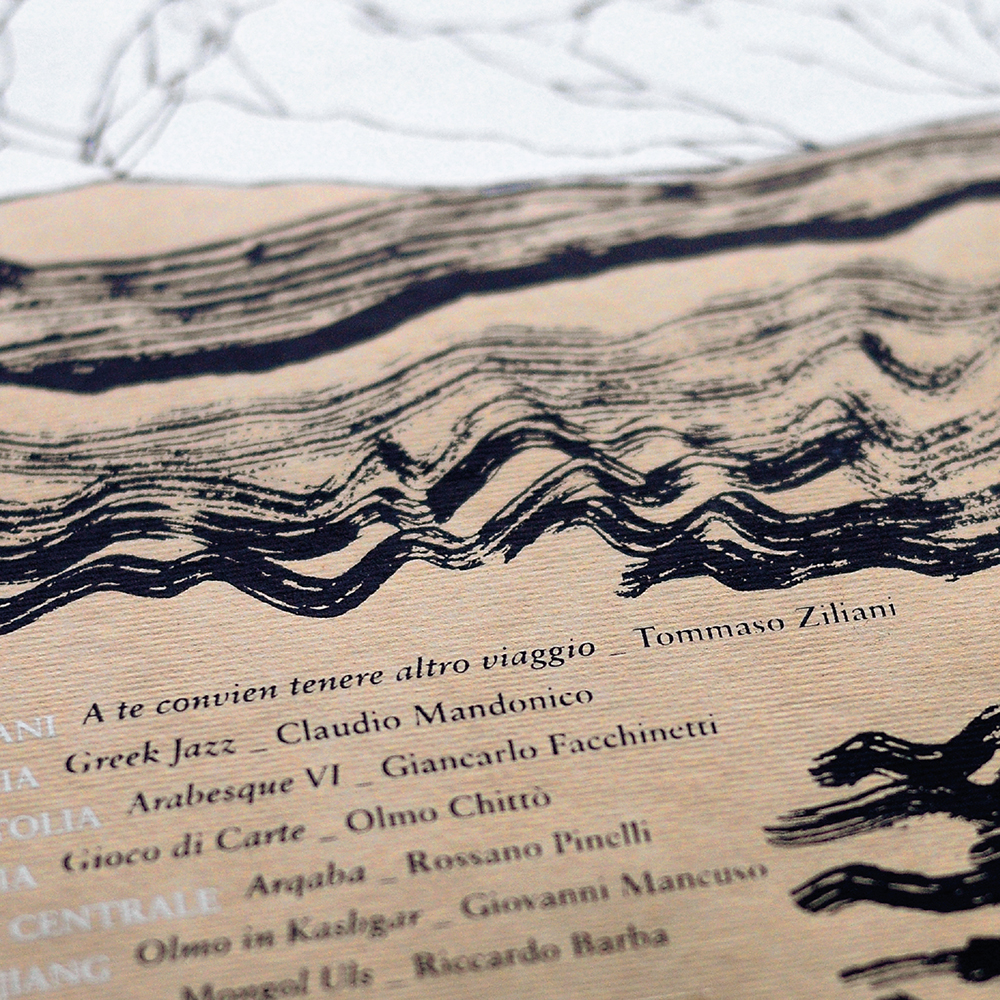 ANI A te convien tenere altro viaggio _ Tommaso Ziliani
IA Greek Jazz _ Claudio Mandonico
TOLIA Arabesque VI _ Giancarlo Facchinetti
IA Gioco di Carte _ Olmo Chittò
CENTRALE Arqaba _ Rossano Pinelli
JIANG Olmo in Kashgar _ Giovanni Mancuso
Mongol Uls _ Riccardo Barba